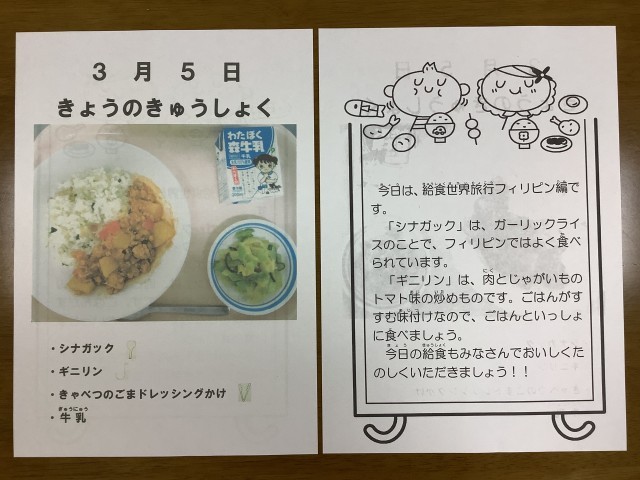 3月5日
きょうのきゅうしょく
わたぼく
牛乳
・シナガック
・ギニリン
・きゃべつのごまドレッシングかけ
ぎゅうにゅう
・牛乳
今日は、給食世界旅行フィリピン編で
す。
「シナガック」は、ガーリックライ
スのことで、フィリピンではよく食べ
られています。
「ギニリン」は、肉とじゃがいもの
トマト味の炒めものです。ごはんがす
すむ味付けなので、ごはんといっしょ
に食べましょう。
今日の給食もみなさんでおいしくた
のしくいただきましょう！！